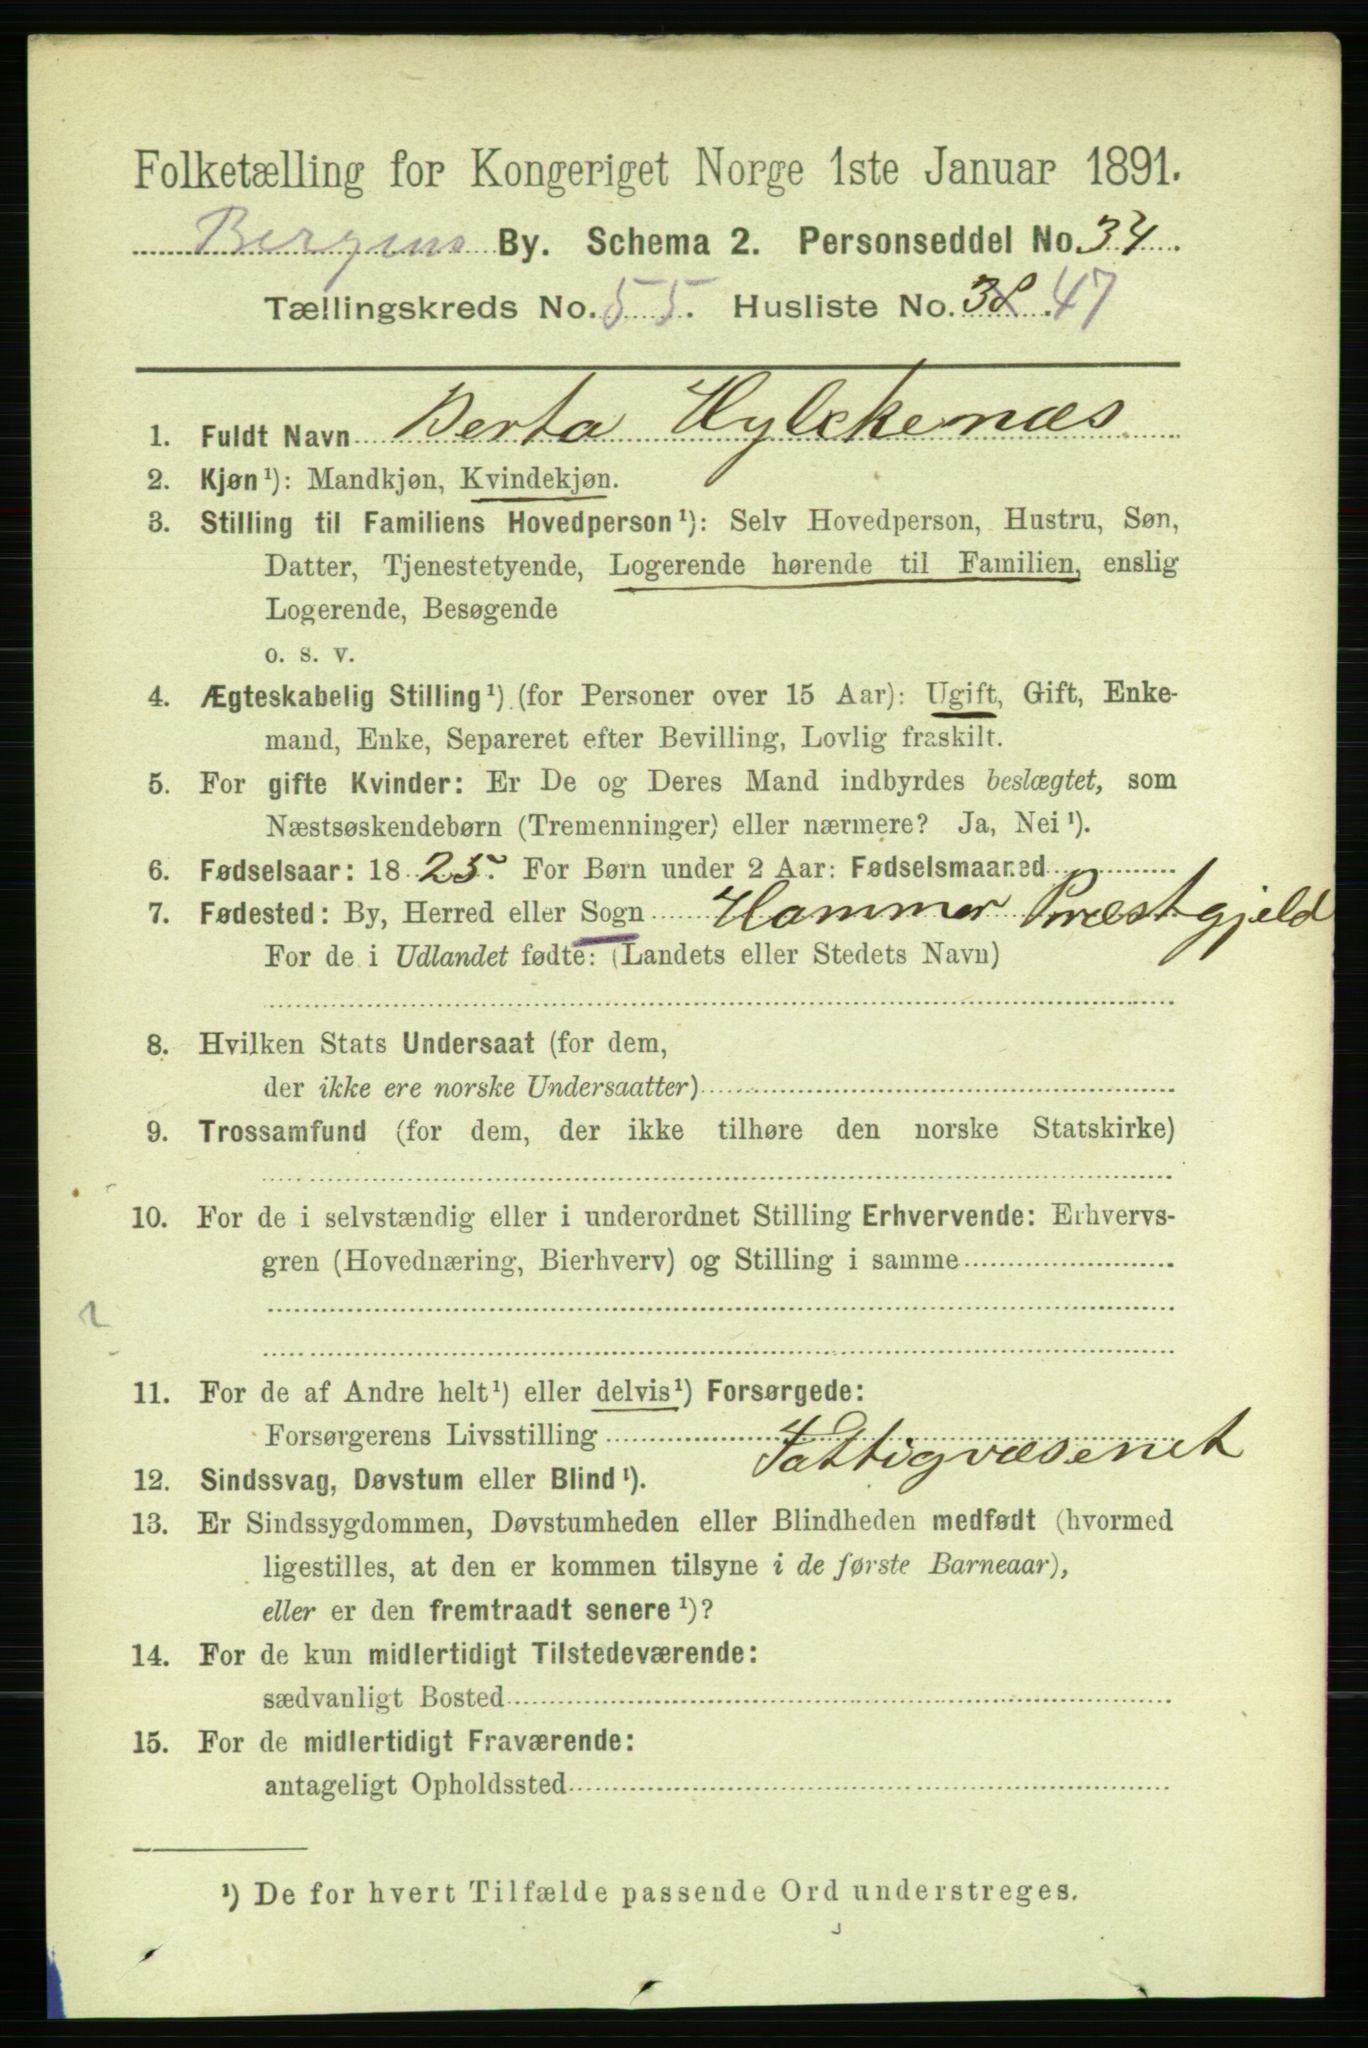 Folketælling for Kongeriget Norge 1ste Januar 1891.
Bergens By. Schema 2. Personseddel No. 34.
Tællingskreds No. 55. Husliste No. 38. 47
1. Fuldt Navn Berta Hylckenæs
2. Kjøn¹): Mandkjøn, Kvindekjøn.
3. Stilling til Familiens Hovedperson¹): Selv Hovedperson, Hustru, Søn,
Datter, Tjenestetyende, Logerende hørende til Familien, enslig
Logerende, Besøgende
o. s. v.
4. Ægteskabelig Stilling¹) (for Personer over 15 Aar): Ugift, Gift, Enke-
mand, Enke, Separeret efter Bevilling, Lovlig fraskilt.
5. For gifte Kvinder: Er De og Deres Mand indbyrdes beslægtet, som
Næstsøskendebørn (Tremenninger) eller nærmere? Ja, Nei¹).
6. Fødselsaar: 18 25. For Børn under 2 Aar: Fødselsmaaned
7. Fødested: By, Herred eller Sogn Hammer Præstgjeld
For de i Udlandet fødte: (Landets eller Stedets Navn)
8. Hvilken Stats Undersaat (for dem,
der ikke ere norske Undersaatter)
9. Trossamfund (for dem, der ikke tilhøre den norske Statskirke)
10. For de i selvstændig eller i underordnet Stilling Erhvervende: Erhvervs-
gren (Hovednæring, Bierhverv) og Stilling i samme
11. For de af Andre helt¹) eller delvis¹) Forsørgede:
Forsørgerens Livsstilling Fattigvæsenet
12. Sindssvag, Døvstum eller Blind¹).
13. Er Sindssygdommen, Døvstumheden eller Blindheden medfødt (hvormed
ligestilles, at den er kommen tilsyne i de første Barneaar),
eller er den fremtraadt senere¹)?
14. For de kun midlertidigt Tilstedeværende:
sædvanligt Bosted
15. For de midlertidigt Fraværende:
antageligt Opholdssted
¹) De for hvert Tilfælde passende Ord understreges.